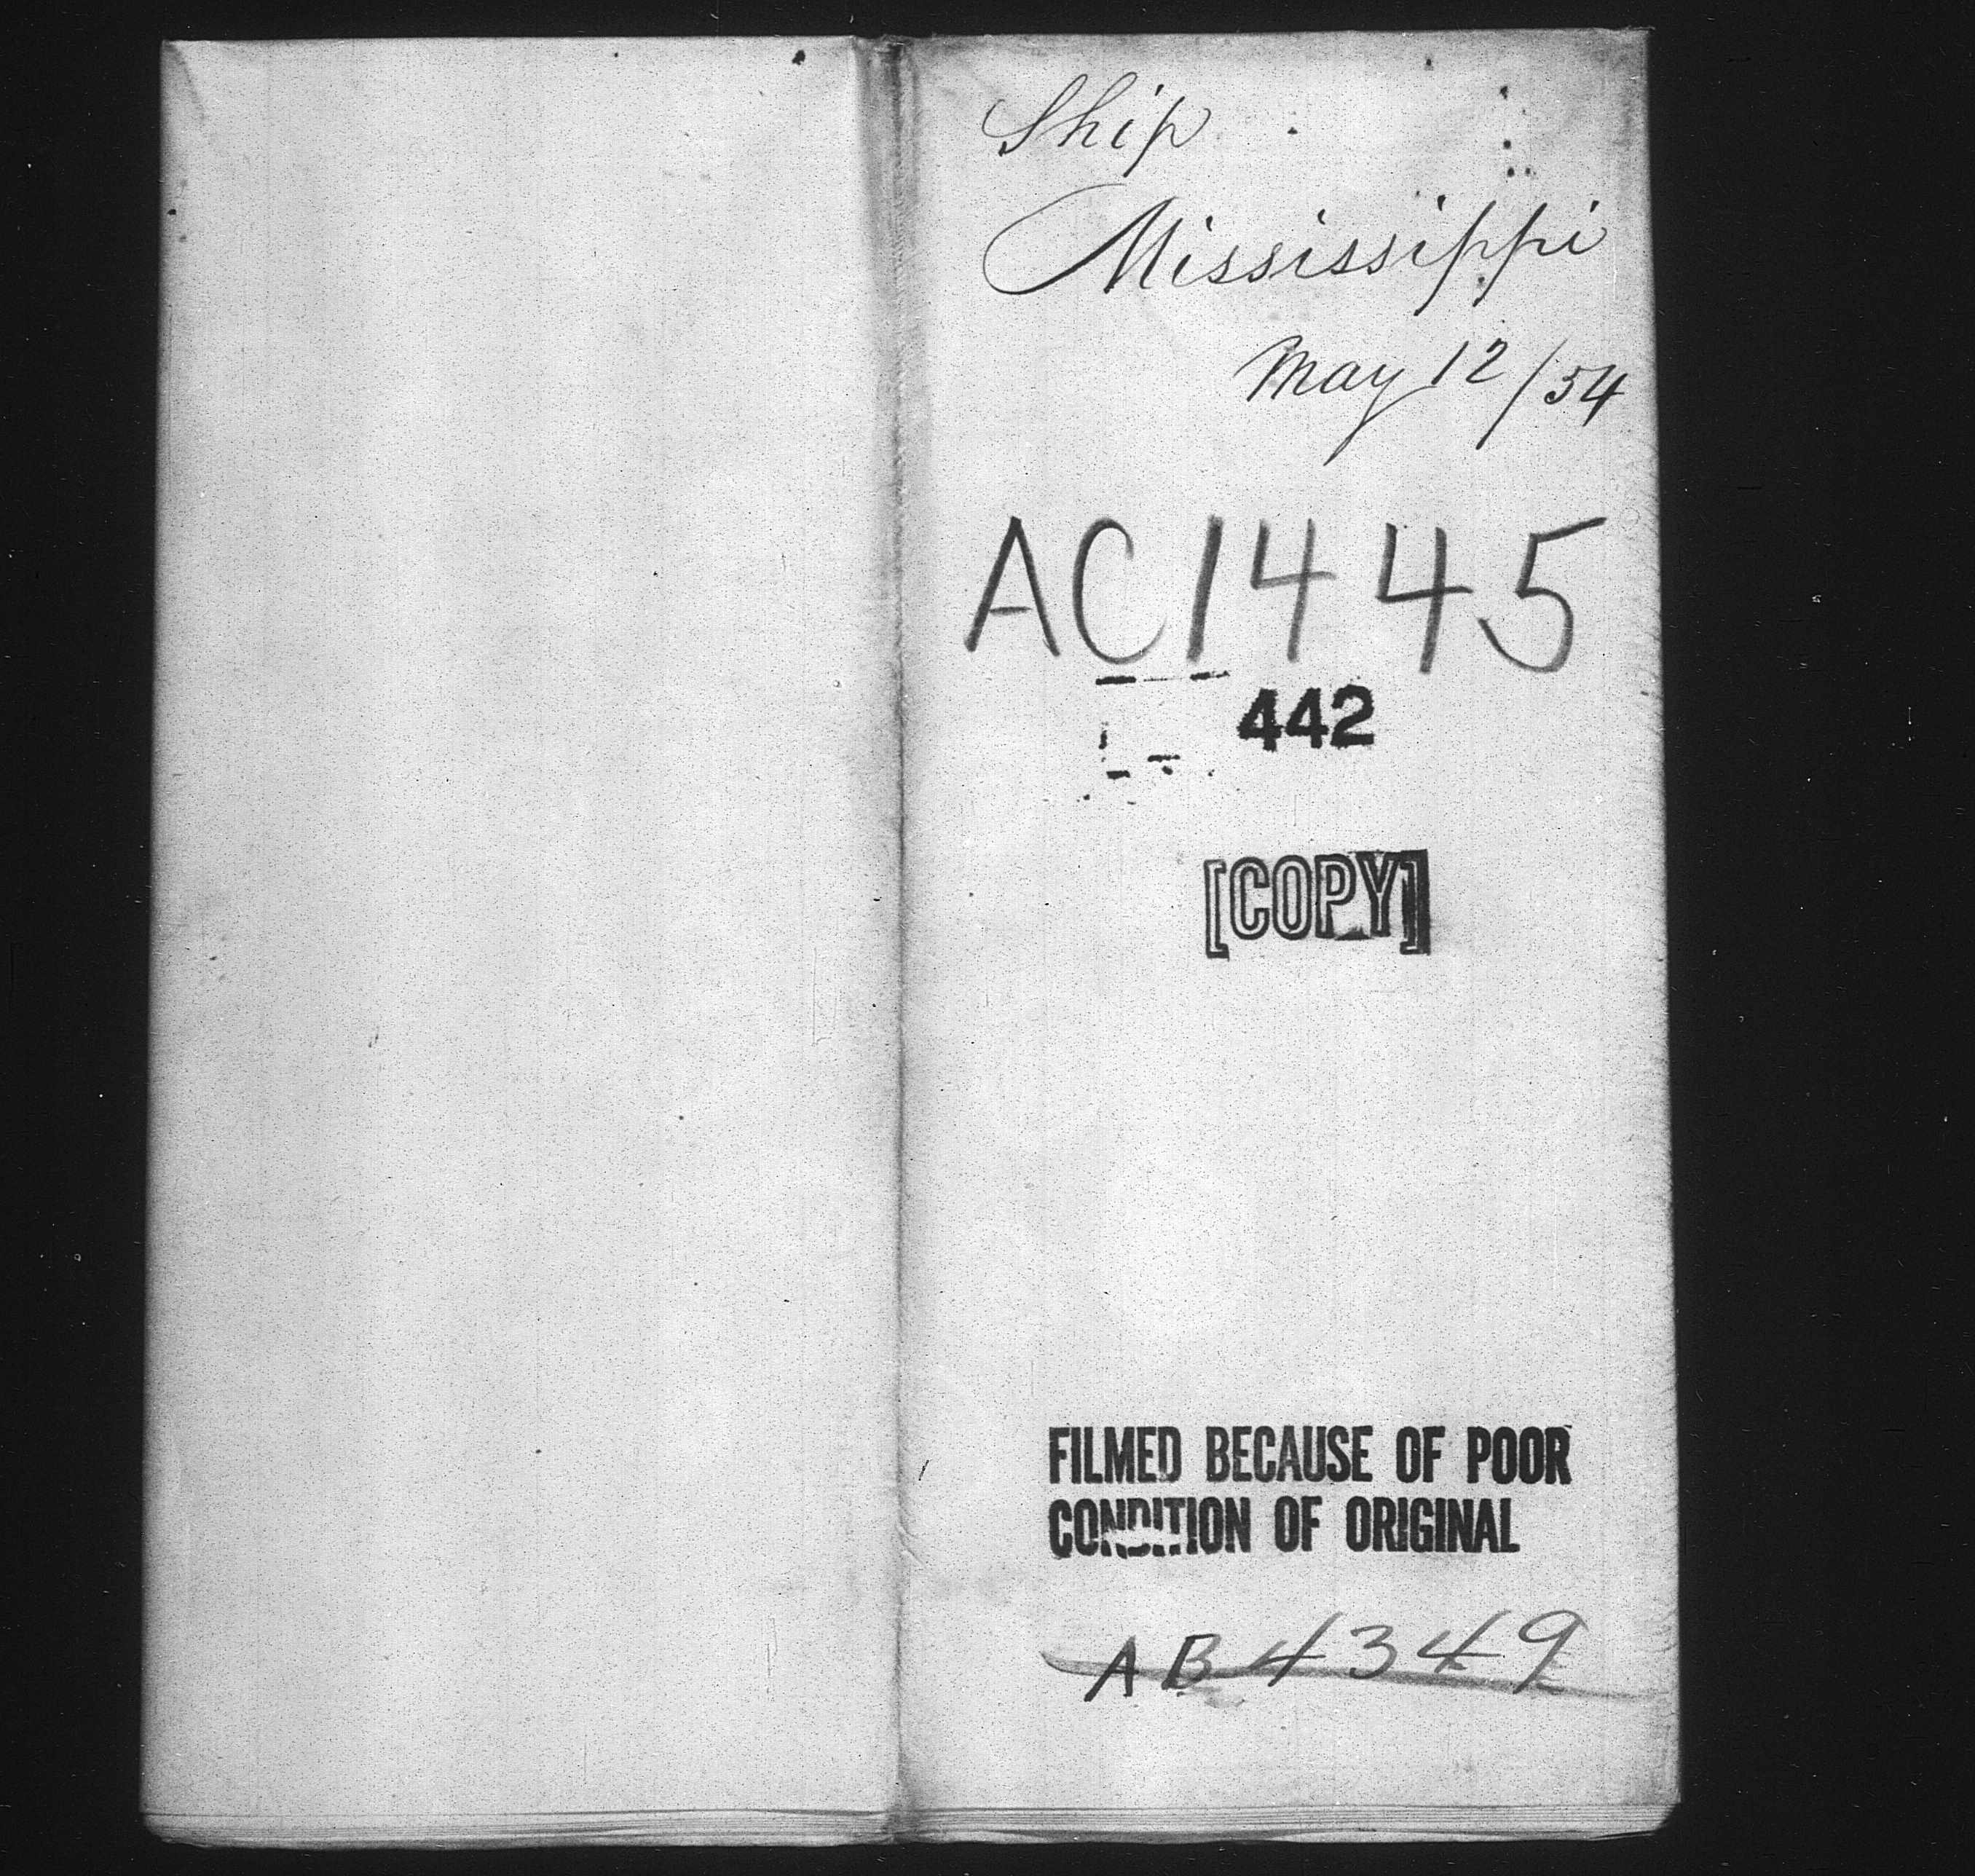 Ship
Mississippi
May 12/54
AC1445
442
[COPY]
FILMED BECAUSE OF POOR
CONDITION OF ORIGINAL
AB4349